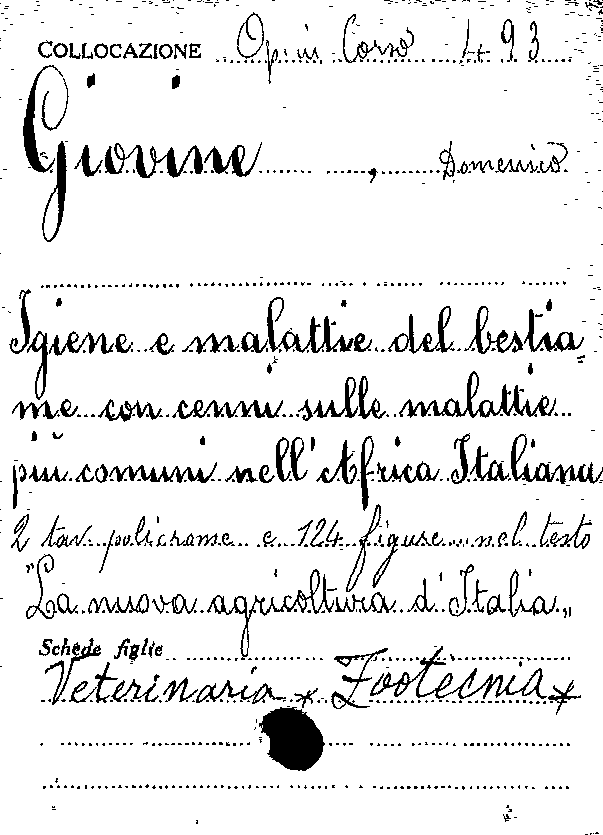 COLLOCAZIONE Opim Corso 493
Giovine , Domenico
Igiene e malattie del bestia=
me con cenni sulle malattie
più comuni nell'Africa Italiana
2 tav. policrome e 124 figure nel testo
"La nuova agricoltura d'Italia"
Schede figlie
Veterinaria x Zootecnia x